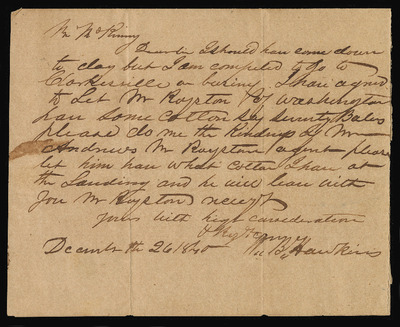 Mr McKinny
Dear Sir I should have come down
to day but I am compeled to go to
Clarksville on business. I have agreed
to Let Mr Royston of Washington
have some cotton say seventy Bales
please do me the kindness if Mr
Andrews Mr Royston agent please
let him have what cotton I have at
the Landing and he will leave with
you Mr Royston receipt
yours with high consideration
& Respt
Hawkins
December 26 1840